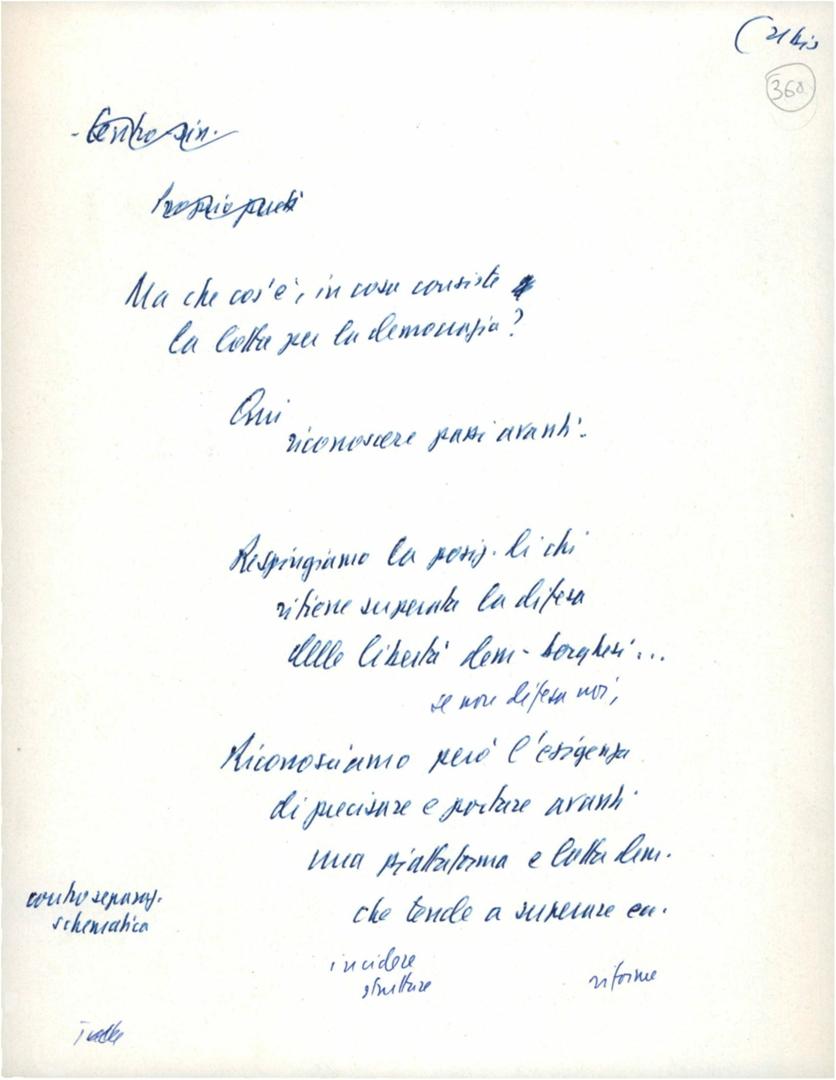 (21 bis
368
- Centro sin.
Ma che cos'è, in cosa consiste
la lotta per la democrazia?
Qui
riconoscere passi avanti.
Respingiamo la posiz. di chi
ritiene superata la difesa
delle libertà dem-borghesi...
se non difesa noi,
Riconosciamo però l'esigenza
di precisare e portare avanti
una piattaforma e lotta dem.
che tende a superare
contro separaz.
schematica
incidere
strutture
riforme